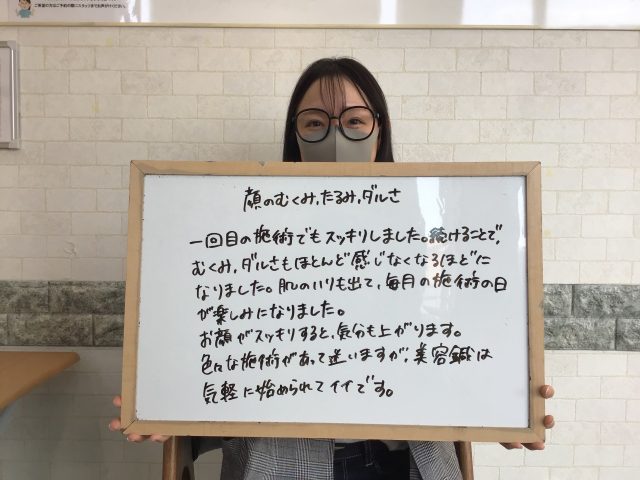 ご希望の方はご予約の際にスタッフまでお声がけください。
顔のむくみ,たるみ,ダルさ
一回目の施術でもスッキリしました。続けることで,
むくみ,ダルさもほとんど感じなくなるほどに
なりました。肌のハリも出て,毎月の施術の日
が楽しみになりました。
お顔がスッキリすると,気分も上がります。
色々な施術があって迷いますが,美容鍼は
気軽に始められてイイです。